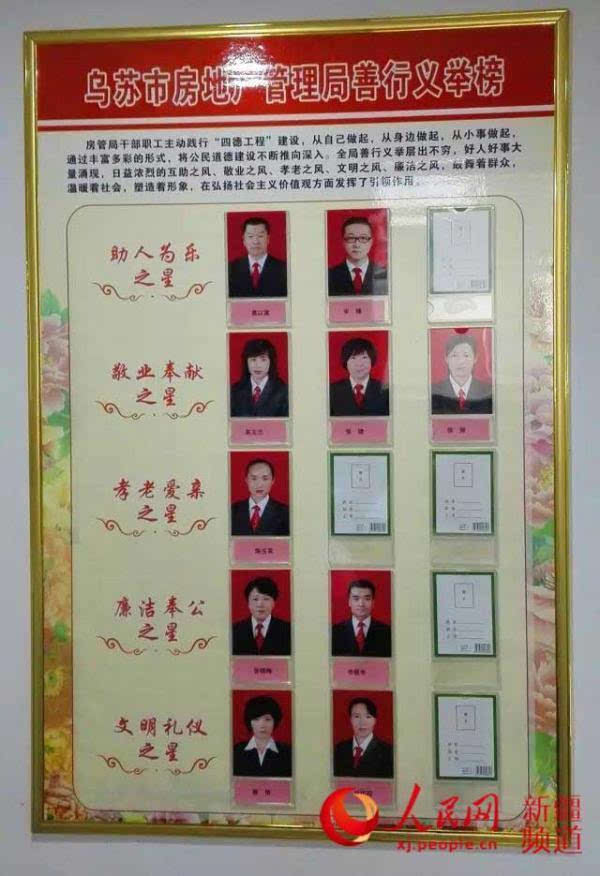 乌苏市房地产管理局善行义举榜
房管局干部职工主动践行“四德工程”建设，从自己做起，从身边做起，从小事做起，
通过丰富多彩的形式，将公民道德建设不断推向深入。全局善行义举层出不穷，好人好事大
量涌现，日益浓烈的互助之风、敬业之风、孝老之风、文明之风、廉洁之风，鼓舞着群众，
温暖着社会，塑造着形象，在弘扬社会主义价值观方面发挥了引领作用。
助人为乐
之星
敬业奉献
之星
孝老爱亲
之星
廉洁奉公
之星
文明礼仪
之星
人民网
xj.people.cn
新疆
频道